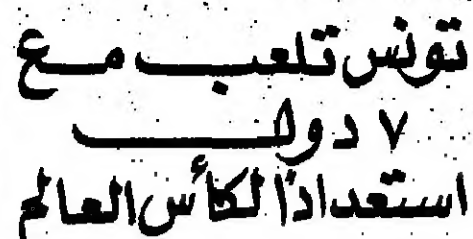 تونس تلعب مع
٧ دول
استعدادًا لكأس العالم